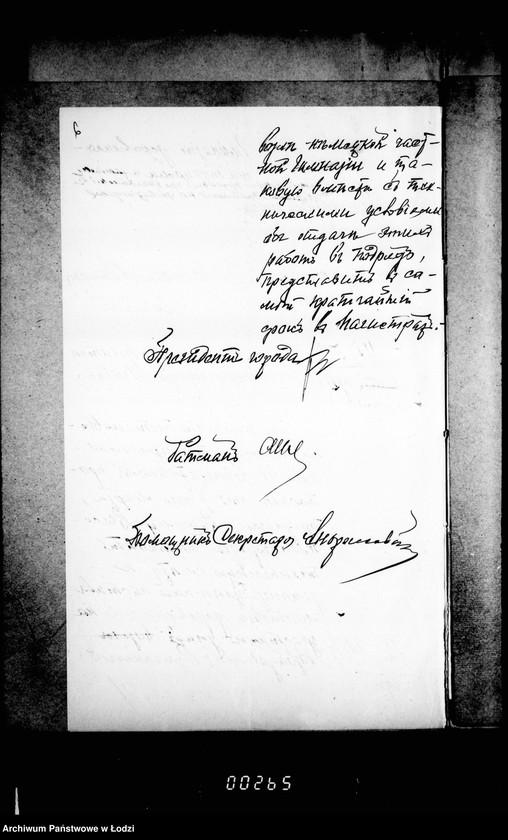 воромъ нѣмецкой част-
ной Гимназіи и та-
ковую вмѣстѣ съ тех-
ническими условіями
отдачи этихъ
работъ въ подрядъ,
представитъ въ са-
мый кратчайшій
срокъ въ Магистратъ.
Президентъ города
Ратманъ
Помощникъ Секретаря
00265
Archiwum Państwowe w Łodzi